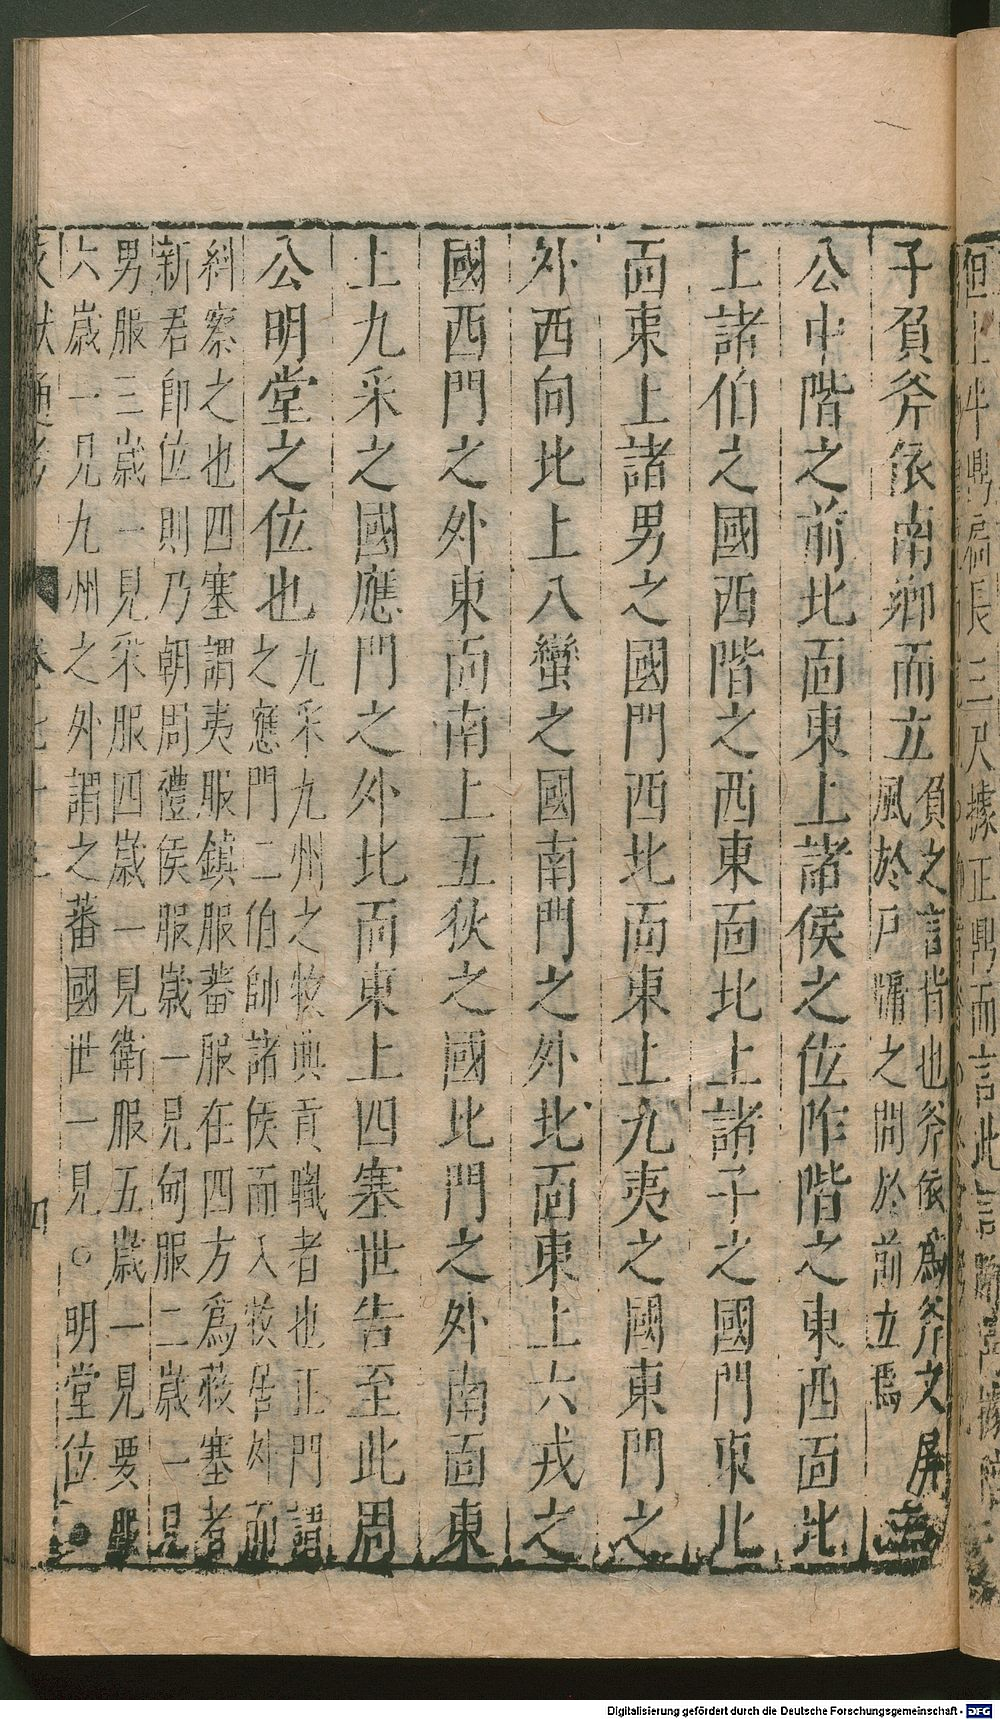 子負斧依南鄉而立負之言背也斧依爲斧文屏
風於戶牖之間於前立焉
公中階之前北面東上諸侯之位阼階之東西面北
上諸伯之國西階之西東面北上諸子之國門東北
面東上諸男之國門西北面東上九夷之國東門之
外西向北上八蠻之國南門之外北面東上六戎之
國西門之外東面南上五狄之國北門之外南面東
上九采之國應門之外北面東上四塞世告至此周
公明堂之位也九采九州之牧典貢職者也正門謂
之應門二伯帥諸侯而入牧居外而
糾察之也四塞謂夷服鎮服蕃服在四方爲蔽塞者
新君即位則乃朝周禮侯服歲一見甸服二歲一見
男服三歲一見采服四歲一見衛服五歲一見要服
六歲一見九州之外謂之蕃國世一見○明堂位
四
Digitalisierung gefördert durch die Deutsche Forschungsgemeinschaft - DFG